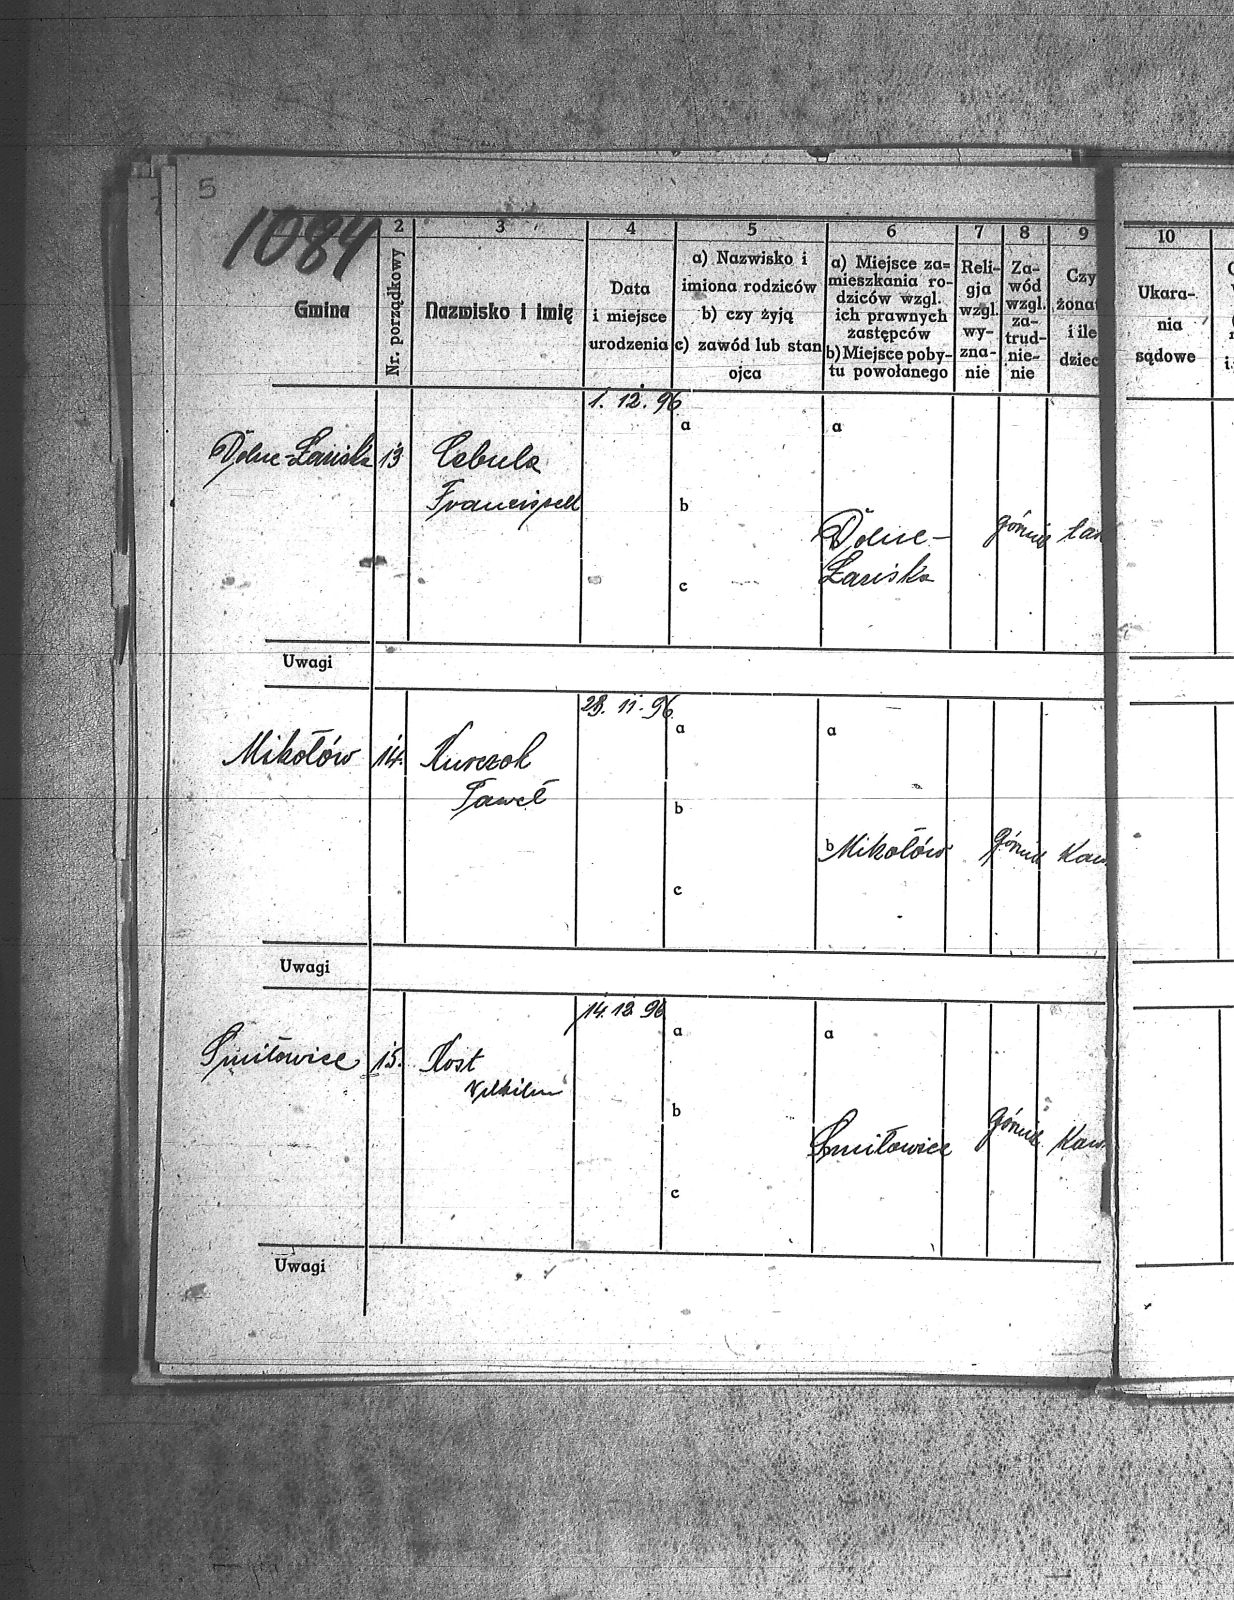 5
1084
2 3 4 5 6 7 8 9 10
Gmina
Nr. porządkowy
Nazwisko i imię
Data
i miejsce
urodzenia
a) Nazwisko i
imiona rodziców
b) czy żyją
c) zawód lub stan
ojca
a) Miejsce za=
mieszkania ro-
dziców wzgl.
ich prawnych
zastępców
b) Miejsce poby-
tu powołanego
Reli-
gja
wzgl.
wy-
zna-
nie
Za-
wód
wzgl.
za-
trud-
nie-
nie
Czy
żonat
i ile
dziec
Ukara-
nia
sądowe
1. 12. 96
Dolne-Łaziska 13 Cebula
Franciszek
a
b
c
a
Dolne-
Łaziska
górnik
Uwagi
11. 96
Mikołów 14. Kurczok
Paweł
a
b
c
a
b Mikołów górnik Kaw.
Uwagi
14. 12. 96
Śmiłowice 15. Kost
a
b
c
a
Śmiłowice górnik Kaw.
Uwagi